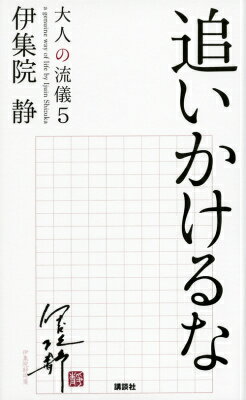 追いかけるな
大人の流儀5
a genuine way of life by Ijuin Shizuka
伊集院 静
講談社